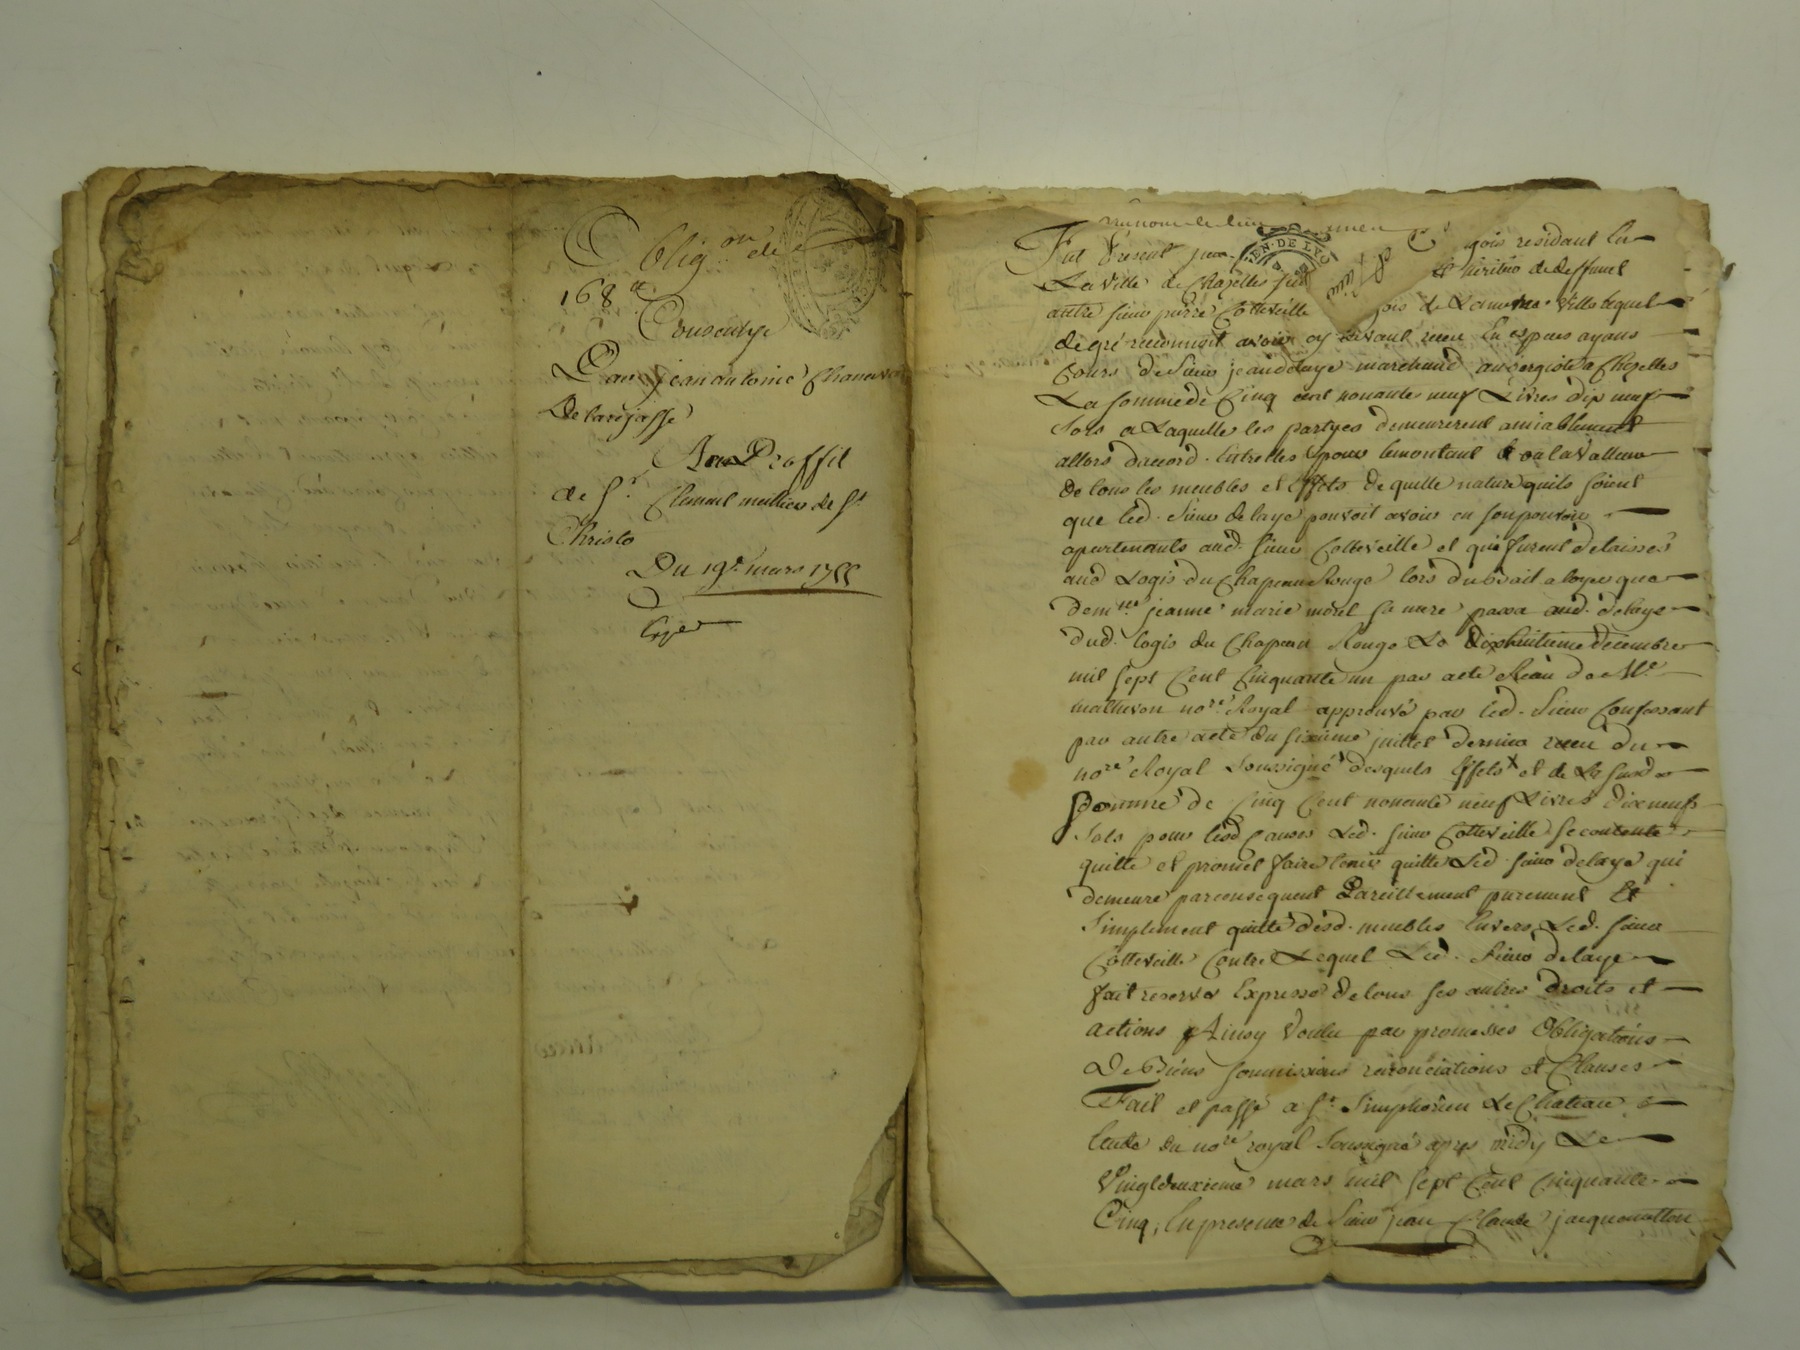 Oblig.on de
168 ₶
Consentye
Par jean antoine Chanavas
De larajasse
Au Proffit
de Sr. Clement meillier de St
Christo
Du 19e. mars 1755
Exp
GEN. DE LYO
Fut Present jean gois residant En
La Ville de Chazelles fils et heritier de deffunt
autre sieur pierre Cotteveille gois de La meme Ville lequel
de gré reconnoit avoir cy devant receu En especes ayans
Cours de Sieur jean delaye marchand aubergiste a Chazelles
La somme de Cinq cent nonante neuf Livres dix neuf
sols a Laquelle les partyes demeurerent amiablement
allors daccord Entrelles pour le montant de la Valleur
De tous les meubles et Effets de quelle nature quils soient
que led. Sieur delaye pouvoit avoir en son pouvoir
apartenants aud. sieur Cotteveille et qui furent delaissés
aud Logis du Chapeau Rouge lors du bail a loyer que
demlle jeanne marie mont sa mere passa aud. delaye
dud. logis du Chapeau Rouge Le dixhuitieme decembre
mil sept Cent Cinquante un par acte Receu de Me
mathevon nore. Royal approuvé par led. Sieur Confessant
par autre acte du sixieme juillet dernier receu du
nore Royal Soussigné desquels Effets et de La susde
Somme de Cinq Cent nonante neuf Livres dix neuf
Sols pour lesd Causes Led. sieur Cotteveille se contente
quitte et promet faire tenir quitte Led. sieur delaye qui
demeure par consequent Pareillement purement Et
Simplement quitte desd. meubles Envers Led. sieur
Cotteveille Contre Lequel Led. Sieur delaye
fait reserve Expresse de tous ses autres droits et
actions Ainsy Voulu par promesses Obligations
De Biens soumissions renonciations et Clauses
Fait et passé a St. Simphorien Le Chateau
Etude du nore royal Soussigné apres midy Le
Vingtdeuxieme mars mil sept Cent Cinquante
Cinq, En presence de Sieur jean Claude jacquemetton